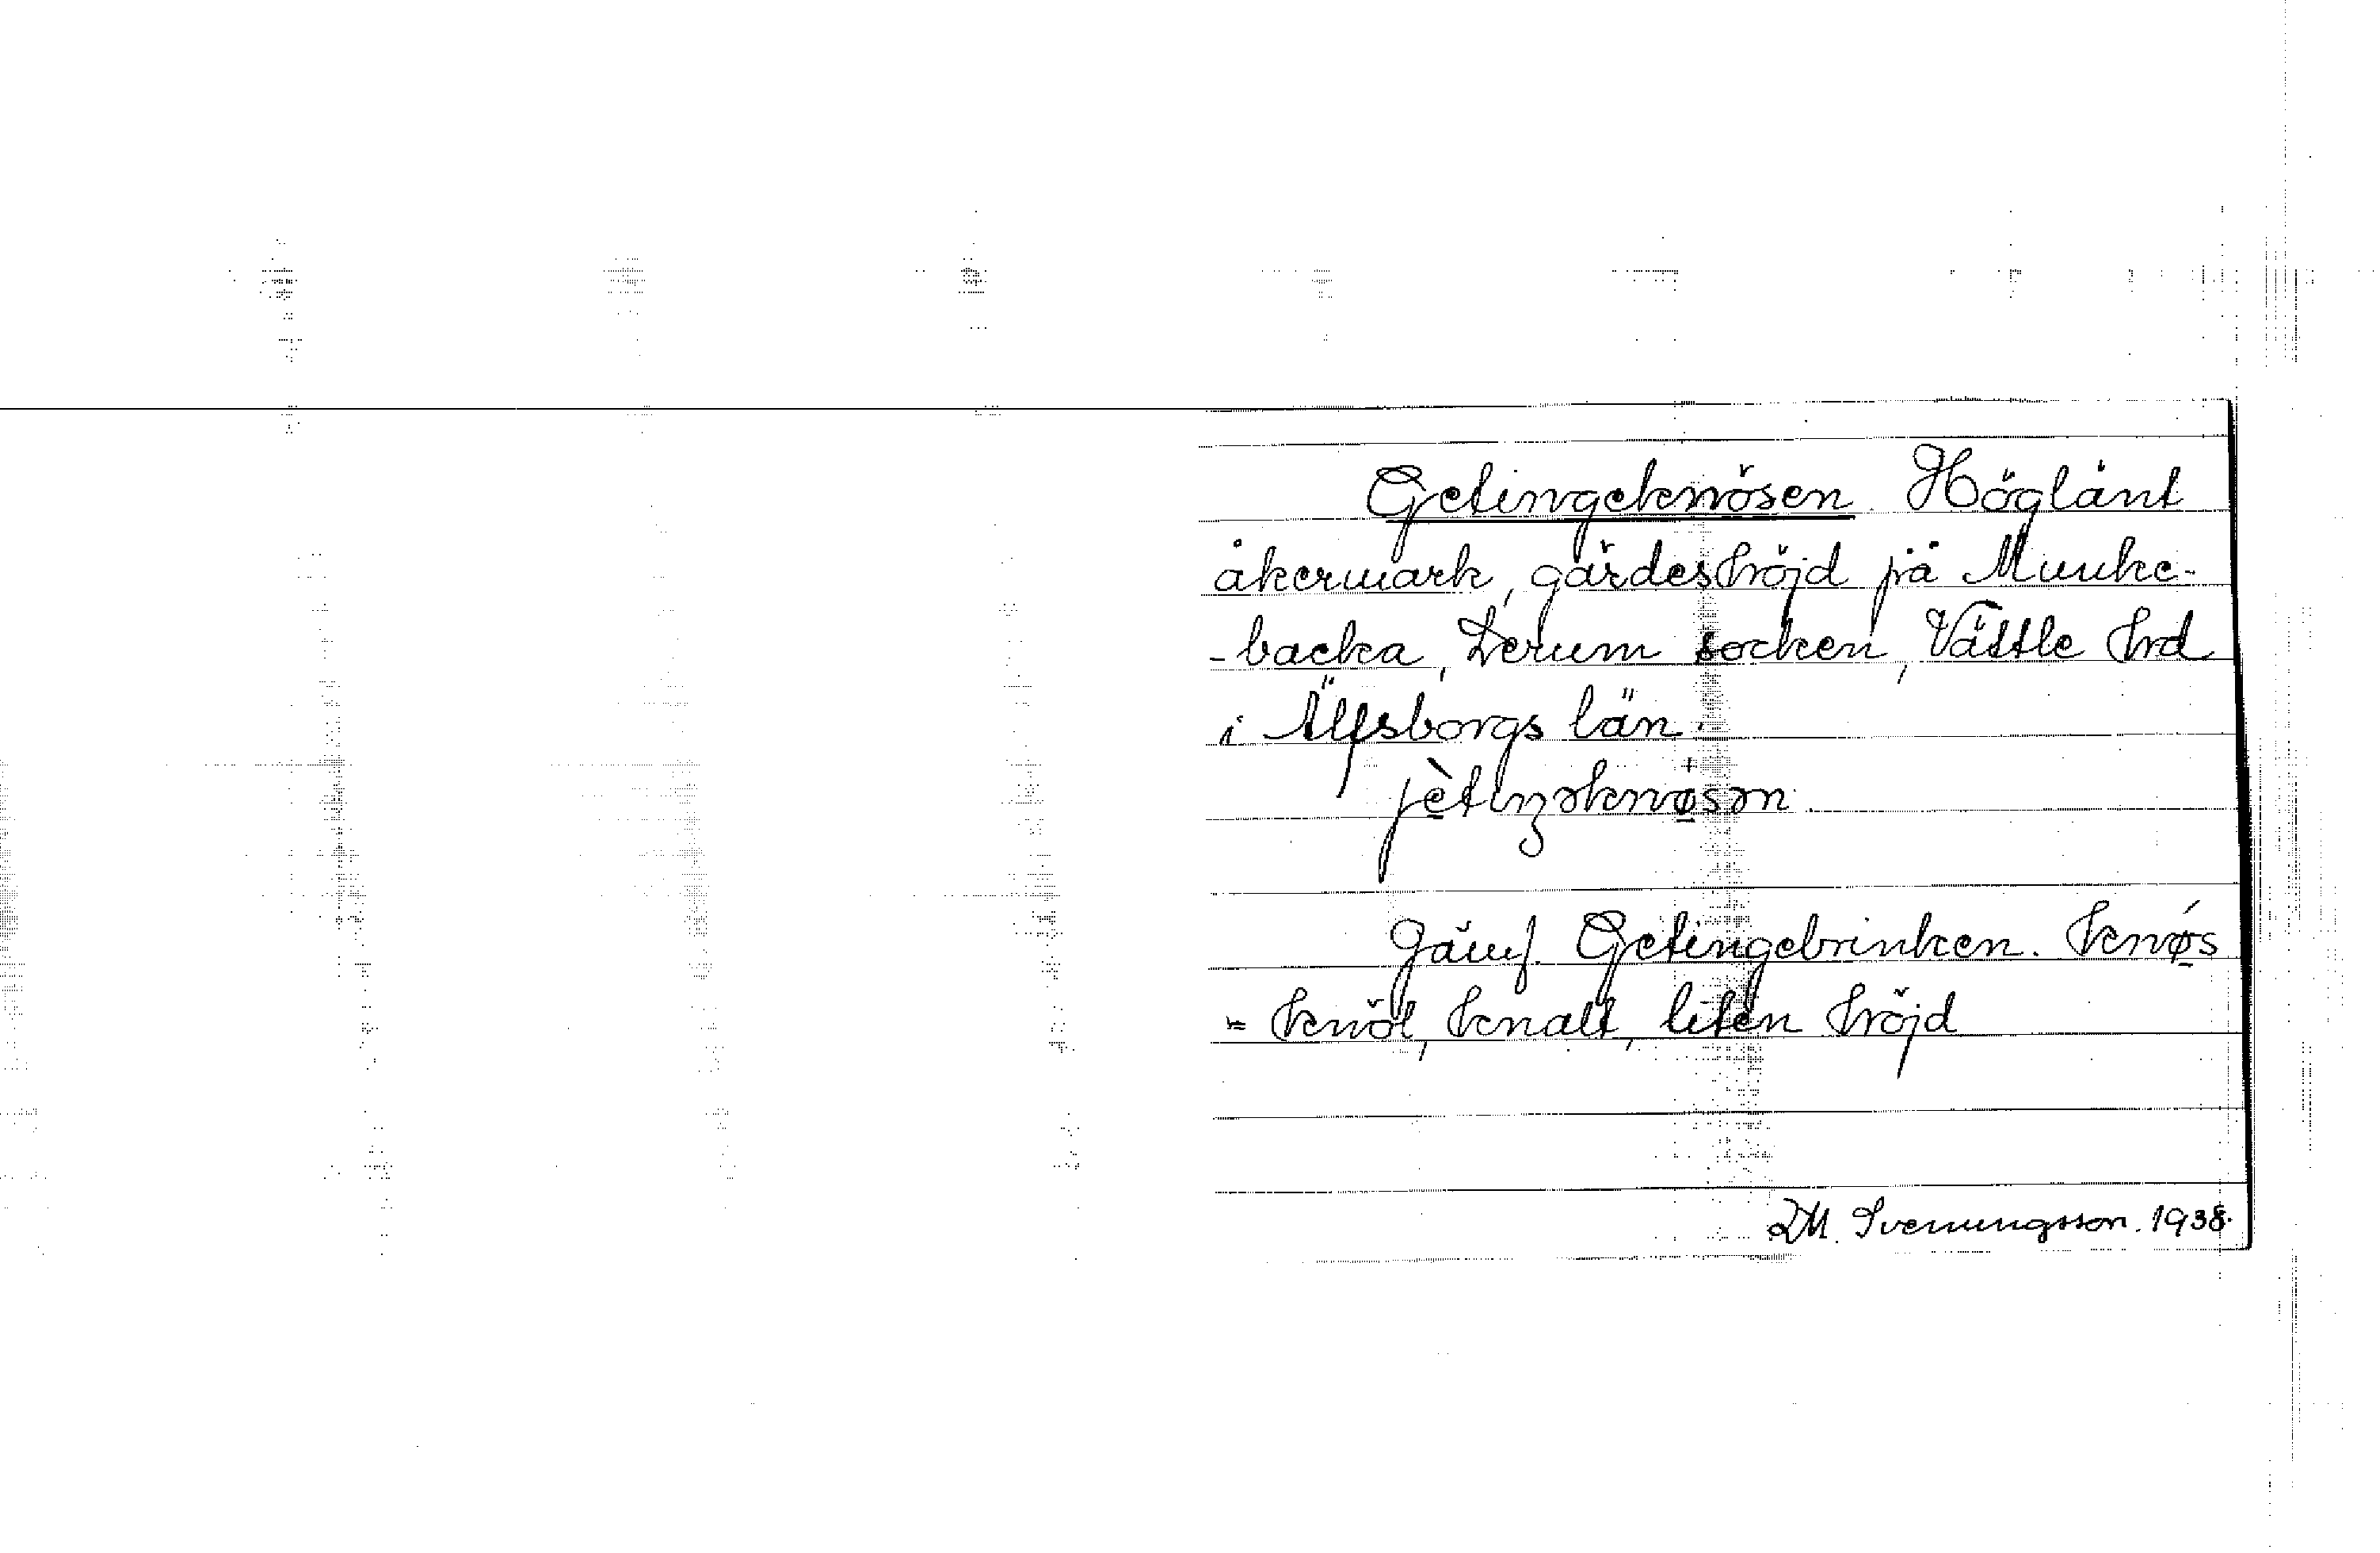 Getingeknösen. Höglänt
åkermark, gärdeshöjd på Munke-
-backa, Lerum socken, Vättle hrd
i Älfsborgs län.
jètɩŋəknøsən.
Jämf. Getingebrinken. knøs
= knöl, knalt, liten höjd
M. Svenungsson. 1938.